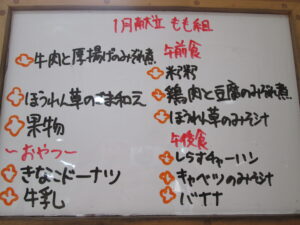 1月献立 もも組
牛肉と厚揚げのみそ煮
ほうれん草のごま和え
果物
〜おやつ〜
きなこドーナツ
牛乳
午前食
米粥
鶏肉と豆腐のみそ煮
ほうれん草のみそ汁
午後食
しらすチャーハン
キャベツのみそ汁
バナナ